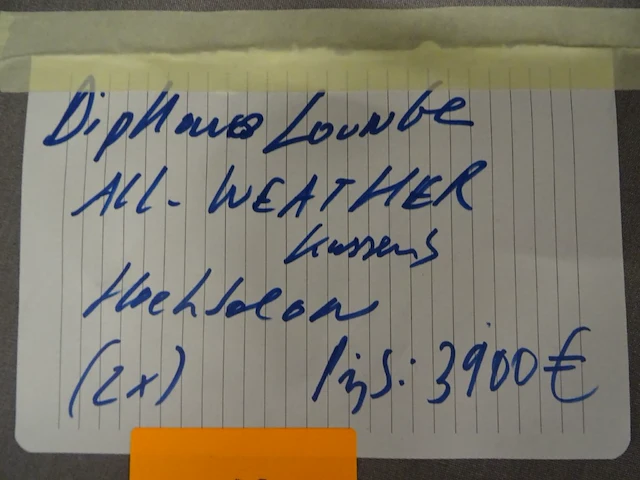 Diphano Lounge
ALL-WEATHER
kussens
Hoeksalon
(2x) Prijs: 3900 €